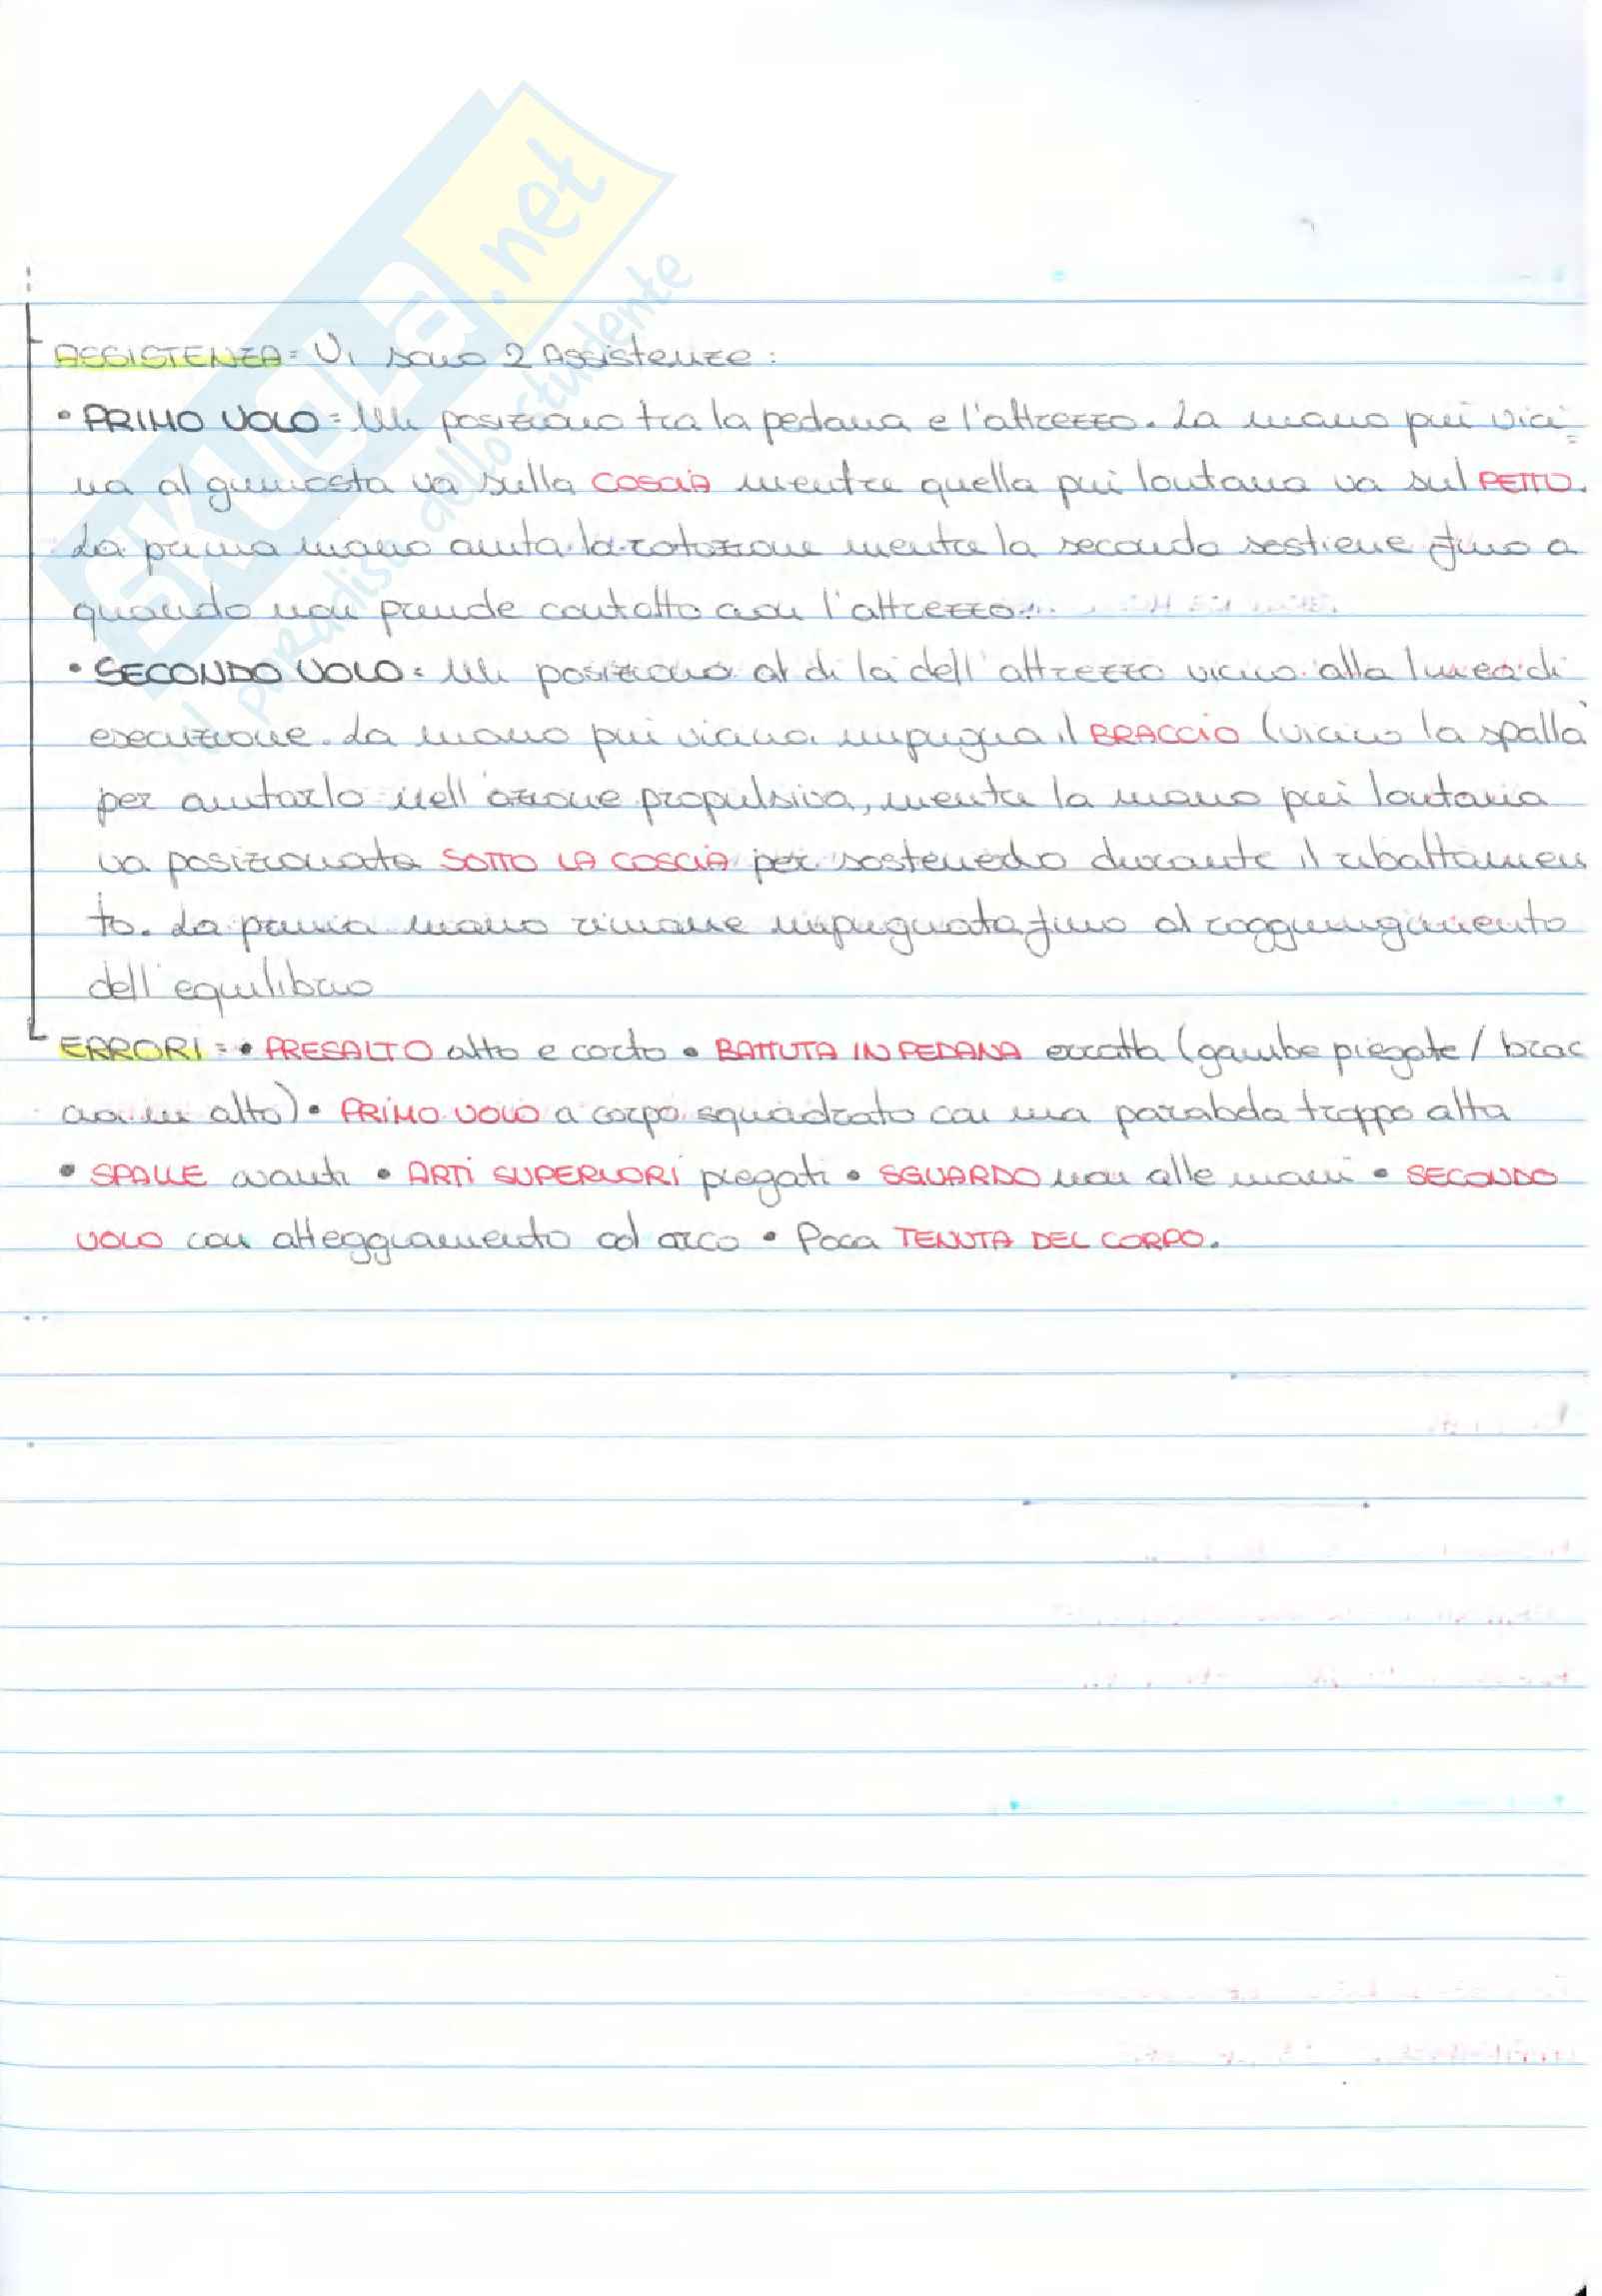 SKUOLA.net
il paradiso dello studente
ASSISTENZA = Vi sono 2 Assistenze:
• PRIMO VOLO = Mi posiziono tra la pedana e l'attrezzo. La mano più vici=
na al ginnasta va sulla COSCIA mentre quella più lontana va sul PETTO.
La prima mano aiuta la rotazione mentre la seconda sostiene fino a
quando non prende contatto con l'attrezzo.
• SECONDO VOLO = Mi posiziono al di là dell'attrezzo vicino alla linea di
esecuzione. La mano più vicina impugna il BRACCIO (vicino la spalla)
per aiutarlo nell'azione propulsiva, mentre la mano più lontana
va posizionata SOTTO LA COSCIA per sostenerlo durante il ribaltamen
to. La prima mano rimane impugnata fino al raggiungimento
dell'equilibrio
ERRORI = • PRESALTO alto e corto • BATTUTA IN PEDANA errata (gambe piegate / brac
cia in alto) • PRIMO VOLO a corpo squadrato con una parabola troppo alta
• SPALLE avanti • ARTI SUPERIORI piegati • SGUARDO non alle mani • SECONDO
VOLO con atteggiamento ad arco • Poca TENUTA DEL CORPO.